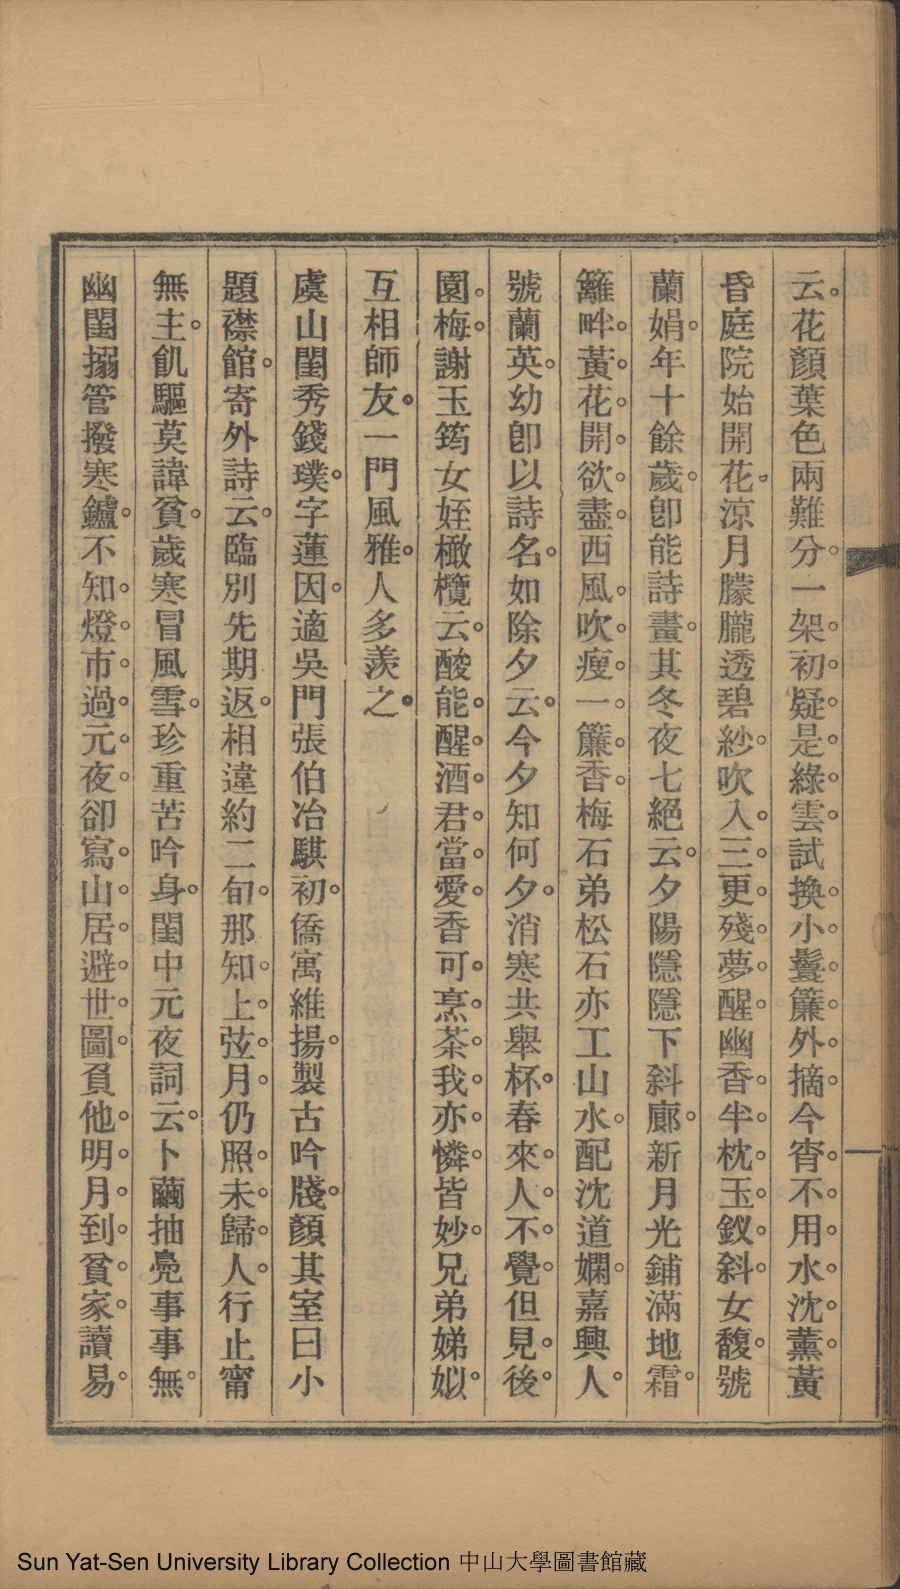 云花顏葉色兩難分一架初疑是綠雲試換小鬟簾外摘今宵不用水沈薰黃
昏庭院始開花涼月朦朧透碧紗吹入三更殘夢醒幽香半枕玉釵斜女馥號
蘭娟年十餘歲卽能詩畫其冬夜七絕云夕陽隱隱下斜廊新月光鋪滿地霜
籬畔黃花開欲盡西風吹瘦一簾香梅石弟松石亦工山水配沈道嫻嘉興人
號蘭英幼卽以詩名如除夕云今夕知何夕消寒共舉杯春來人不覺但見後
園梅謝玉筠女姪橄欖云酸能醒酒君當愛香可烹茶我亦憐皆妙兄弟娣姒
互相師友一門風雅人多羨之
虞山閨秀錢璞字蓮因適吳門張伯冶騏初僑寓維揚製古吟牋顏其室曰小
題襟館寄外詩云臨別先期返相違約二旬那知上弦月仍照未歸人行止甯
無主飢驅莫諱貧歲寒冒風雪珍重苦吟身閨中元夜詞云卜繭抽鳧事事無
幽閨搦管撥寒鑪不知燈市過元夜卻寫山居避世圖貟他明月到貧家讀易
Sun Yat-Sen University Library Collection 中山大學圖書館藏